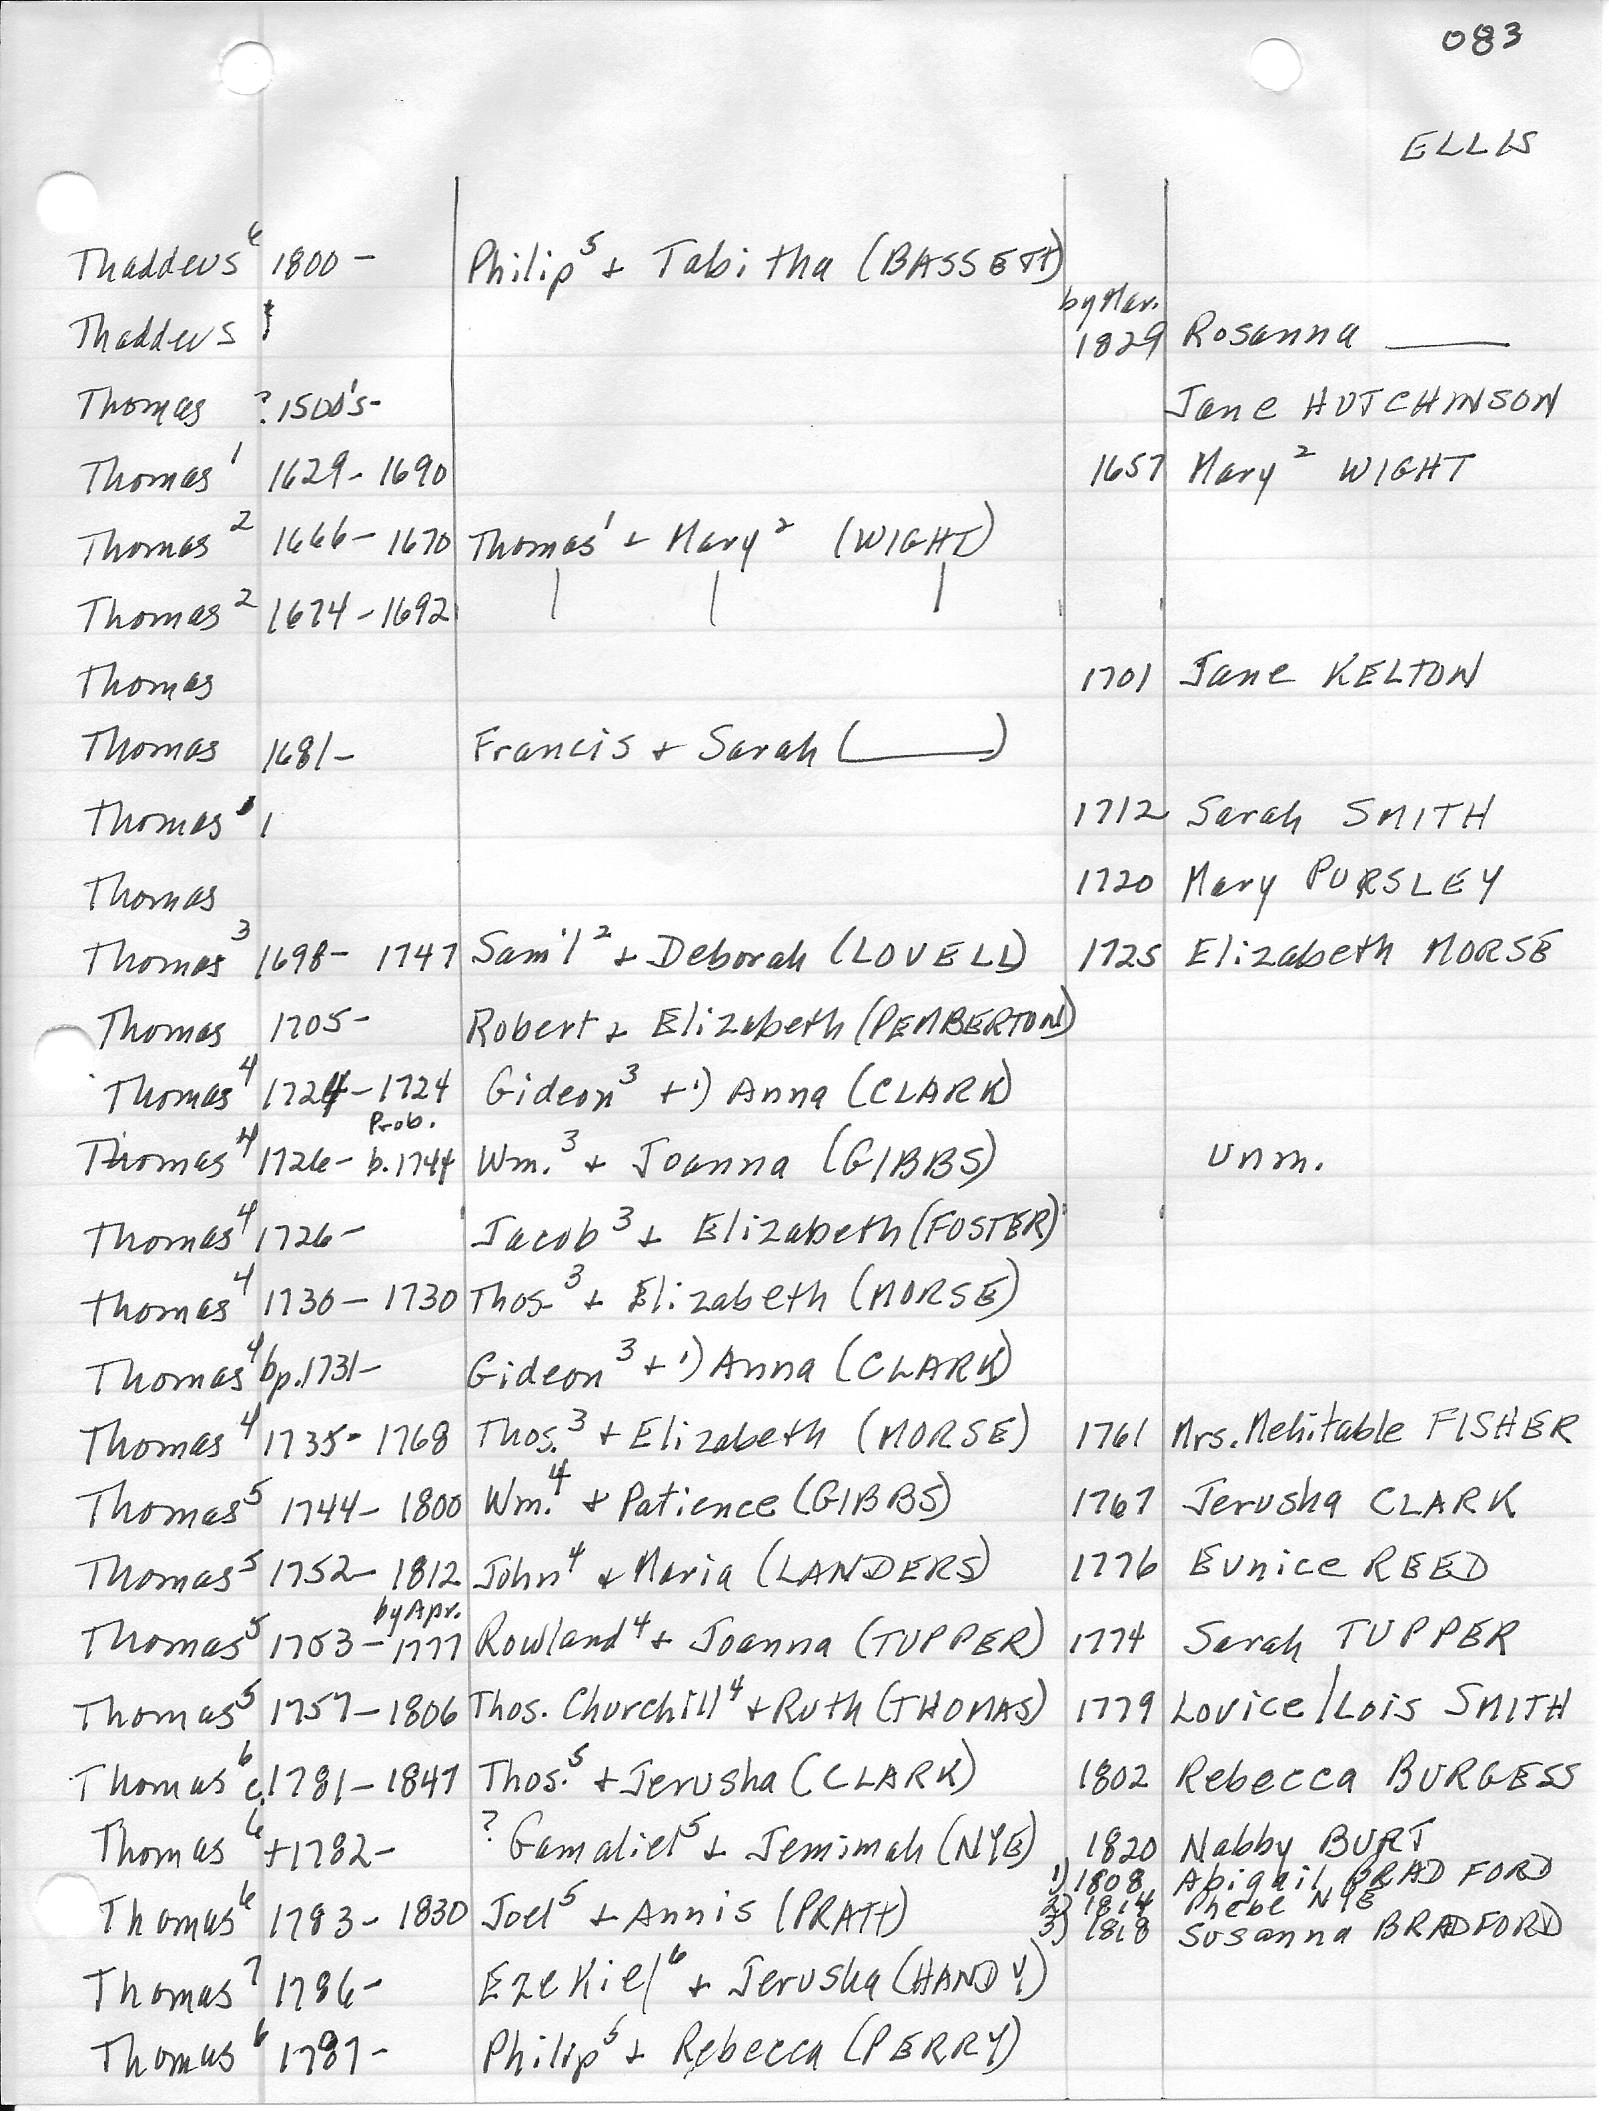 083
ELLIS
Thaddeus⁶ 1800 - Philip⁵ + Tabitha (BASSETT)
by Mar.
Thaddeus 1829 Rosanna ____
Thomas ? 1500's- Jane HUTCHINSON
Thomas¹ 1629 - 1690 1657 Mary² WIGHT
Thomas² 1666 - 1670 Thomas¹ + Mary² (WIGHT)
Thomas² 1674 - 1692 | | |
Thomas 1701 Jane KELTON
Thomas 1681 - Francis + Sarah (____)
Thomas 1712 Sarah SMITH
Thomas 1720 Mary PURSLEY
Thomas³ 1698 - 1747 Sam'l² + Deborah (LOVELL) 1725 Elizabeth MORSE
Thomas 1705 - Robert + Elizabeth (PEMBERTON)
Thomas⁴ 1724 - 1724 Gideon³ + 1) Anna (CLARK)
Prob.
Thomas⁴ 1726 - b. 1744 Wm.³ + Joanna (GIBBS) unm.
Thomas⁴ 1726 - Jacob³ + Elizabeth (FOSTER)
Thomas⁴ 1730 - 1730 Thos.³ + Elizabeth (MORSE)
Thomas⁴ bp. 1731 - Gideon³ + 1) Anna (CLARK)
Thomas⁴ 1735 - 1768 Thos.³ + Elizabeth (MORSE) 1761 Mrs. Mehitable FISHER
Thomas⁵ 1744 - 1800 Wm.⁴ + Patience (GIBBS) 1767 Jerusha CLARK
Thomas⁵ 1752 - 1812 John⁴ + Maria (LANDERS) 1776 Eunice REED
by Apr.
Thomas⁵ 1753 - 1777 Rowland⁴ + Joanna (TUPPER) 1774 Sarah TUPPER
Thomas⁵ 1757 - 1806 Thos. Churchill⁴ + Ruth (THOMAS) 1779 Lovice/Lois SMITH
Thomas⁶ c. 1781 - 1847 Thos.⁵ + Jerusha (CLARK) 1802 Rebecca BURGESS
Thomas⁶ +1782 - ? Gamaliel⁵ + Jemimah (NYE) 1820 Nabby BURT
1) 1808 Abigail BRADFORD
2) 1814 Phebe NYE
Thomas⁶ 1783 - 1830 Joel⁵ + Annis (PRATT) 3) 1818 Susanna BRADFORD
Thomas⁷ 1786 - Ezekiel⁶ + Jerusha (HANDY)
Thomas⁶ 1787 - Philip⁵ + Rebecca (PERRY)